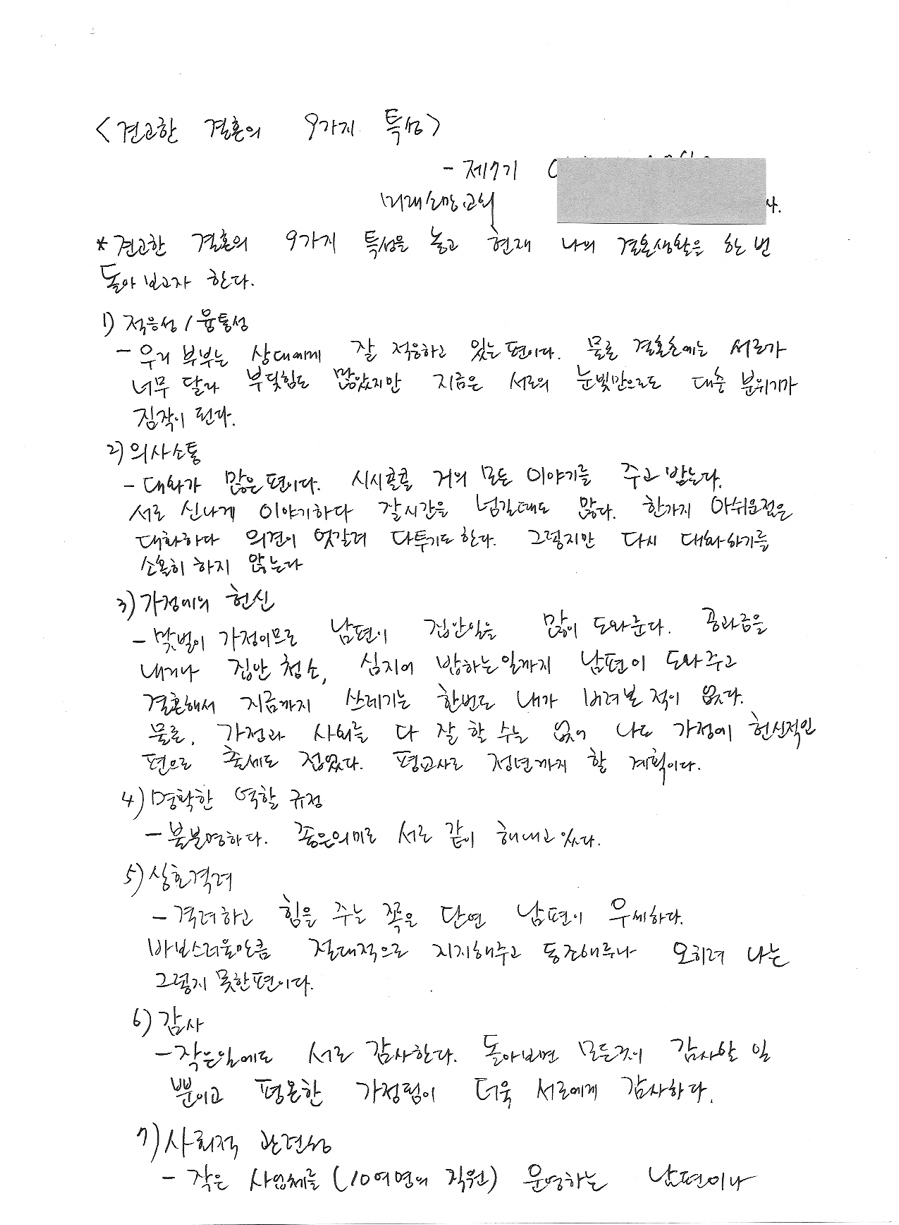 <견고한 결혼의 9가지 특성>
- 제17기
미래소망교회 4.
* 견고한 결혼의 9가지 특성을 놓고 현재 나의 결혼생활을 한 번
돌아 보고자 한다.
1) 적응성 / 융통성
- 우리 부부는 상대에게 잘 적응하고 있는 편이다. 물론 결혼초에는 서로가
너무 달라 부딪힘도 많았지만 지금은 서로의 눈빛만으로도 대충 분위기가
짐작이 된다.
2) 의사소통
- 대화가 많은 편이다. 시시콜콜 거의 모든 이야기를 주고 받는다.
서로 신나게 이야기하다 잘시간을 넘길때도 많다. 한가지 아쉬운점은
대화하다 의견이 엇갈려 다투기도 한다. 그렇지만 다시 대화하기를
소홀히 하지 않는다
3) 가정에의 헌신
- 맞벌이 가정이므로 남편이 집안일을 많이 도와준다. 공과금을
내거나 집안 청소, 심지어 밥하는일까지 남편이 도와주고
결혼해서 지금까지 쓰레기는 한번도 내가 버려본 적이 없다.
물론, 가정과 사회를 다 잘 할 수는 없어 나도 가정에 헌신적인
편으로 출세도 접었다. 평교사로 정년까지 할 계획이다.
4) 명확한 역할 규정
- 불분명하다. 좋은의미로 서로 같이 해내고 있다.
5) 상호격려
- 격려하고 힘을 주는 쪽은 단연 남편이 우세하다.
바보스러울만큼 절대적으로 지지해주고 동조해주나 오히려 나는
그렇지 못한편이다.
6) 감사
- 작은일에도 서로 감사한다. 돌아보면 모든것이 감사할 일
뿐이고 평온한 가정됨이 더욱 서로에게 감사하다.
7) 사회적 관련성
- 작은 사업체를 (10여명의 직원) 운영하는 남편이나